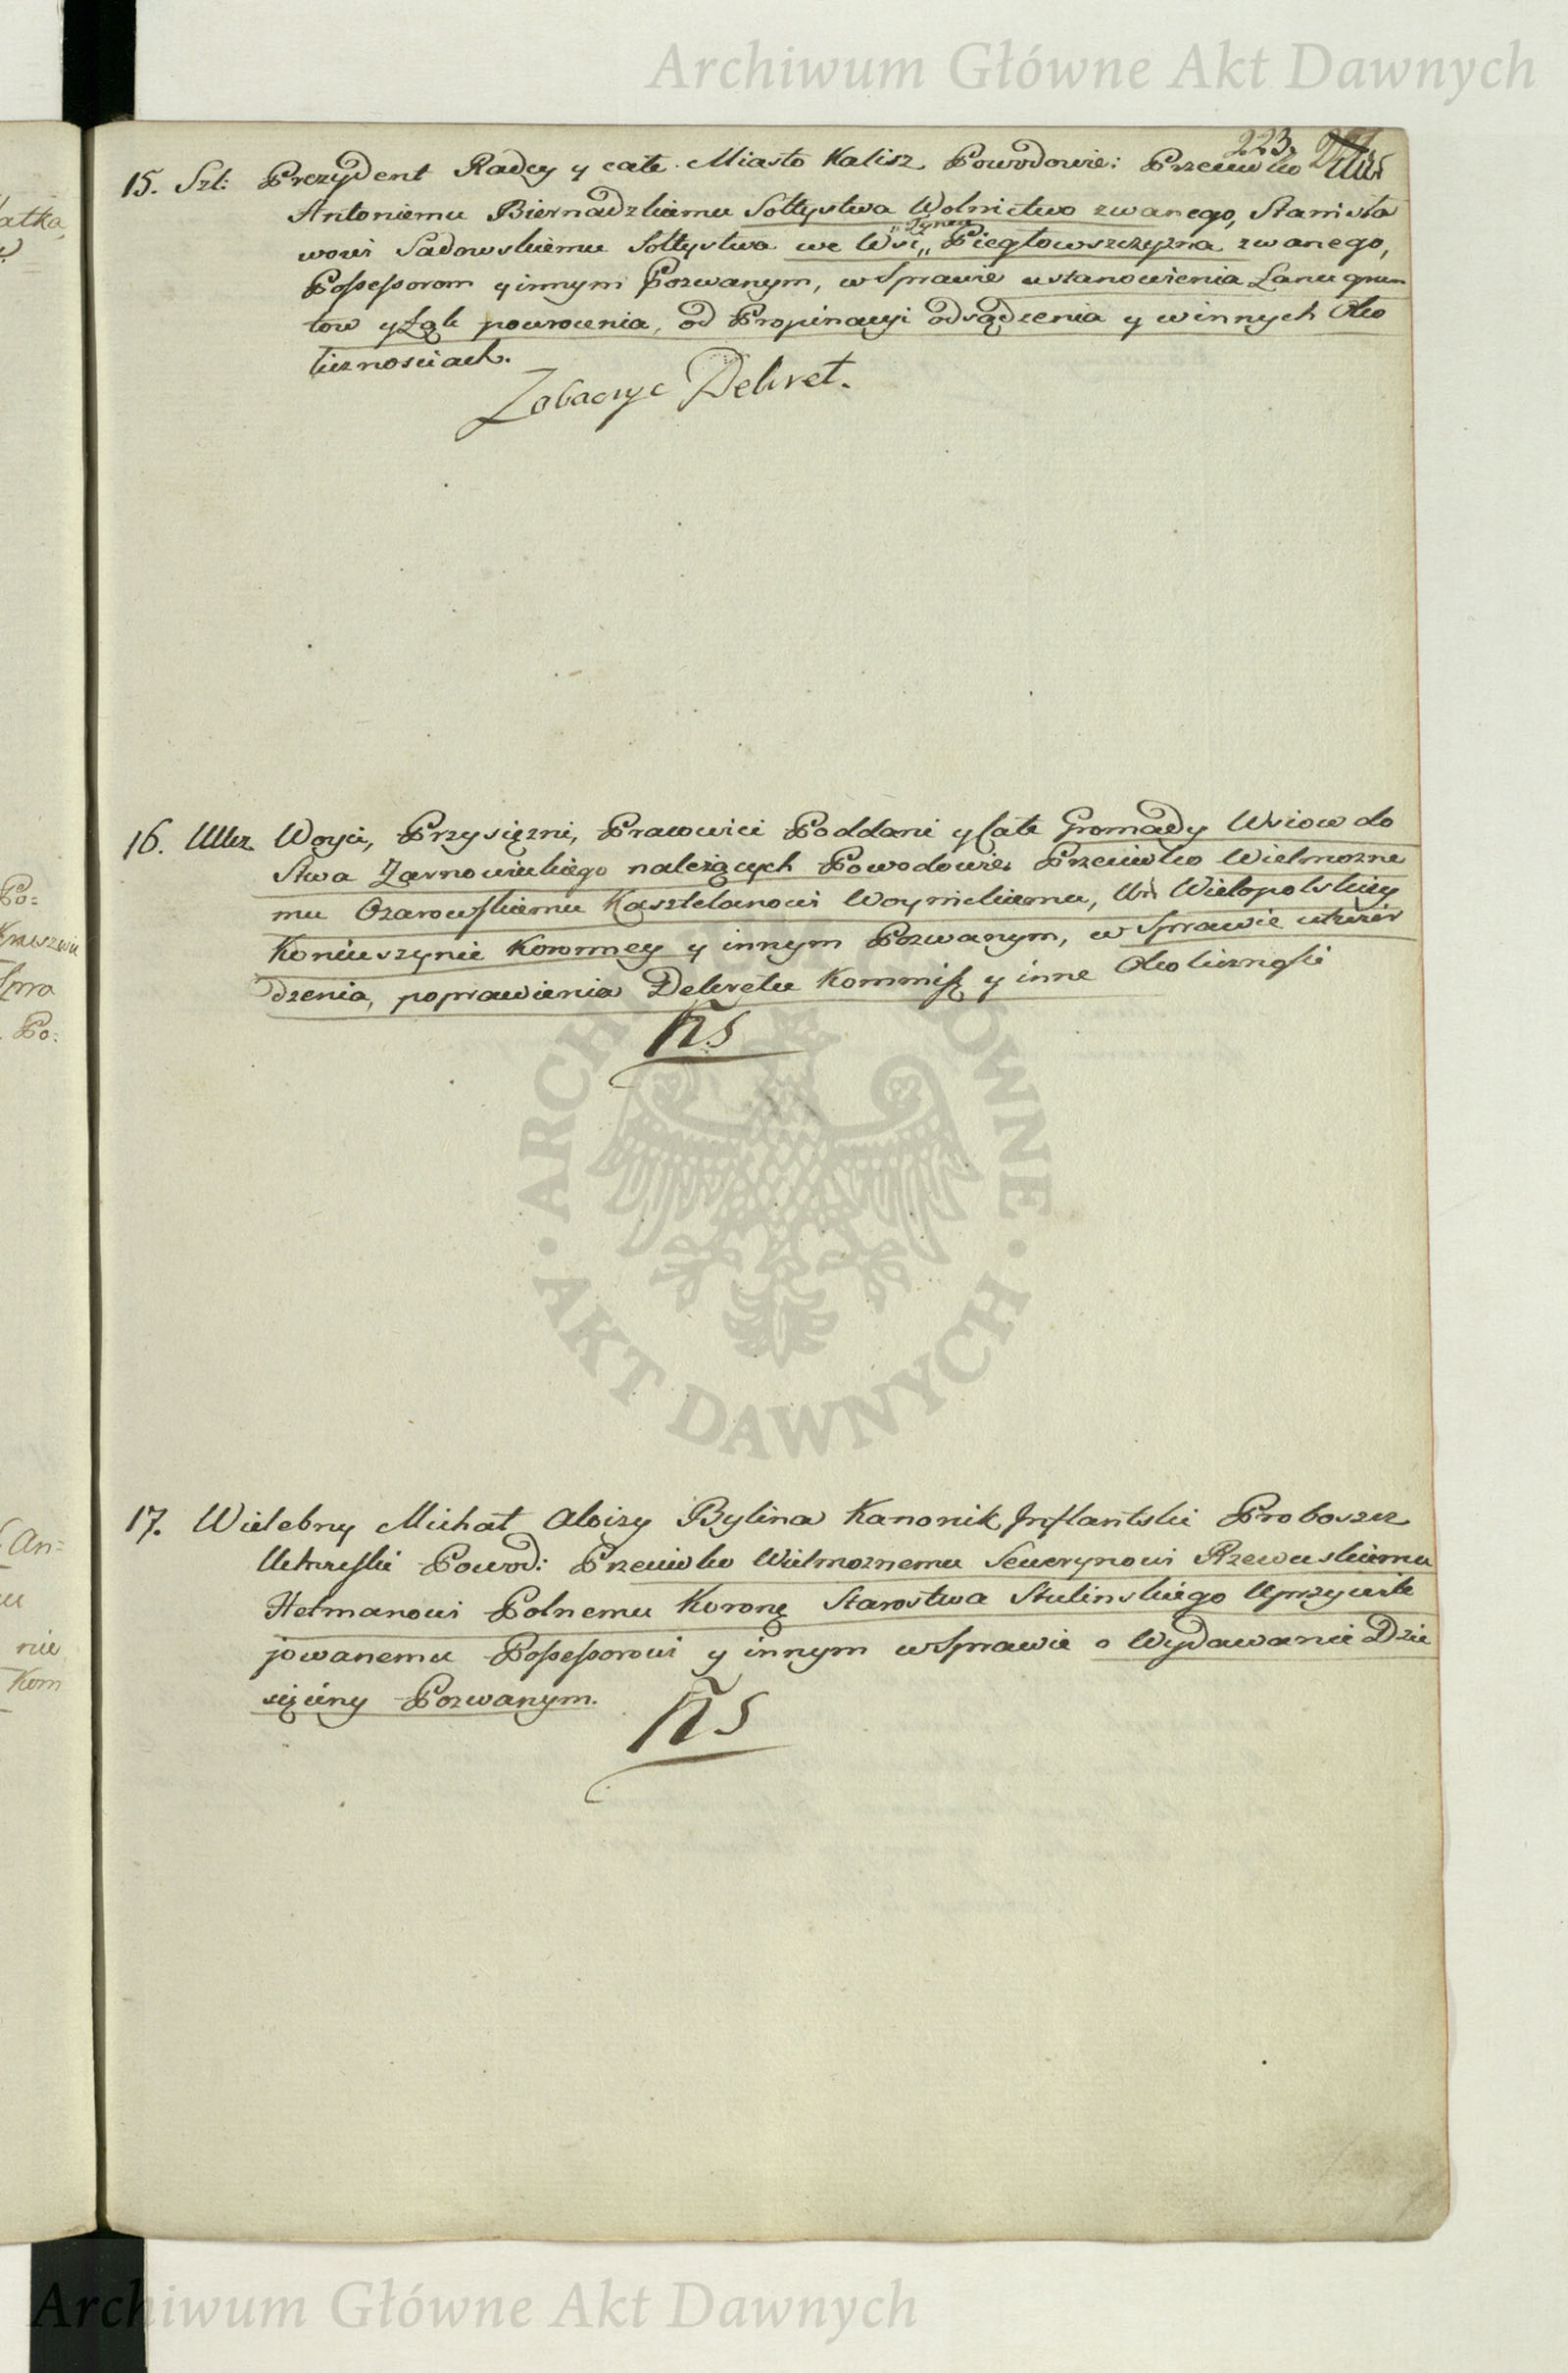 Archiwum Główne Akt Dawnych
223.
15. Szl: Prezydent Radcy y całe Miasto Kalisz Powodowie: Przeciwko
Antoniemu Biernadzkiemu Sołtystwa Wolnictwo zwanego, Stanisła
wowi Sadowskiemu Sołtystwa we Wsi „ Piegłowszczyzna zwanego,
Possessorom y innym Pozwanym, w Sprawie ustanowienia Łanu grun
tow y Łąk powrocenia, od Propinacyi odsądzenia y w innych Oko
licznosciach.
Zobaczyc Dekret.
16. Woyci, Przysięzni, Pracowici Poddani y Całe Gromady Wsiow do
Stwa Zarnowieckiego należących Powodowie: Przeciwko Wielmozne
mu Ozarowskiemu Kasztelanowi Woynickiemu, Wielopolskiey
Koniuszynie Koronney y innym Pozwanym, w Sprawie utwier
dzenia, poprawienia Dekretu Kommiss y inne Okolicznosci
ns
17. Wielebny Michał Aloizy Bylina Kanonik Inflantski Proboszcz
Powod: Przeciwko Wielmoznemu Sewerynowi Rzewuskiemu
Hetmanowi Polnemu Koronę Starostwa Stulinskiego Uprzywile
jowanemu Possessorowi y innym w Sprawie o Wydawanie Dzie
sięciny Pozwanym.
ns
ARCHIWUM GŁÓWNE · AKT DAWNYCH ·
Archiwum Główne Akt Dawnych